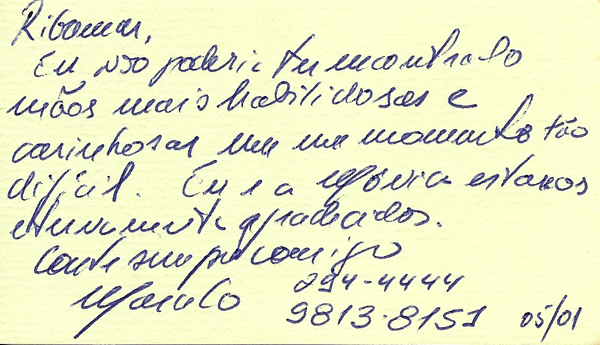 Ribamar,
Eu não poderia ter encontrado
mãos mais habilidosas e
carinhosas em um momento tão
difícil. Eu e a Mônica estamos
eternamente gratos.
Conte sempre comigo
294-4444
Marcelo
9813-8151 05/01